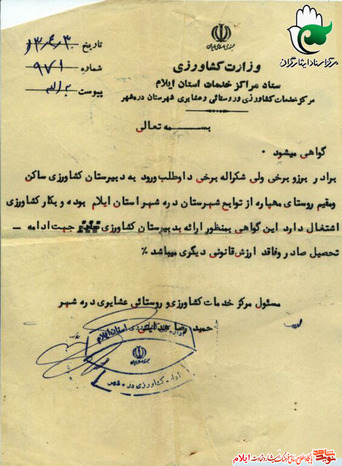 مرکز اسناد ایثارگران
جمهوری اسلامی ایران
تاریخ ۱۳۶۴/۳/۳۰
شماره ۹۷۱
پیوست
وزارت کشاورزی
ستاد مراکز خدمات استان ایلام
مرکز خدمات کشاورزی و روستائی و عشایری شهرستان دره شهر
بسمه تعالی
گواهی میشود .
برادر برزو برخی ولی شکراله برخی داوطلب ورود به دبیرستان کشاورزی ساکن
ومقیم روستای مهپاره از توابع شهرستان دره شهر استان ایلام بوده و بکار کشاورزی
اشتغال دارد این گواهی بمنظور ارائه به دبیرستان کشاورزی جهت ادامه —
تحصیل صادر و فاقد ارزش قانونی دیگری میباشد ٪
مسئول مرکز خدمات کشاورزی و روستائی عشایری دره شهر
حمید رضا
استان ایلام
اداره کشاورزی دره شهر